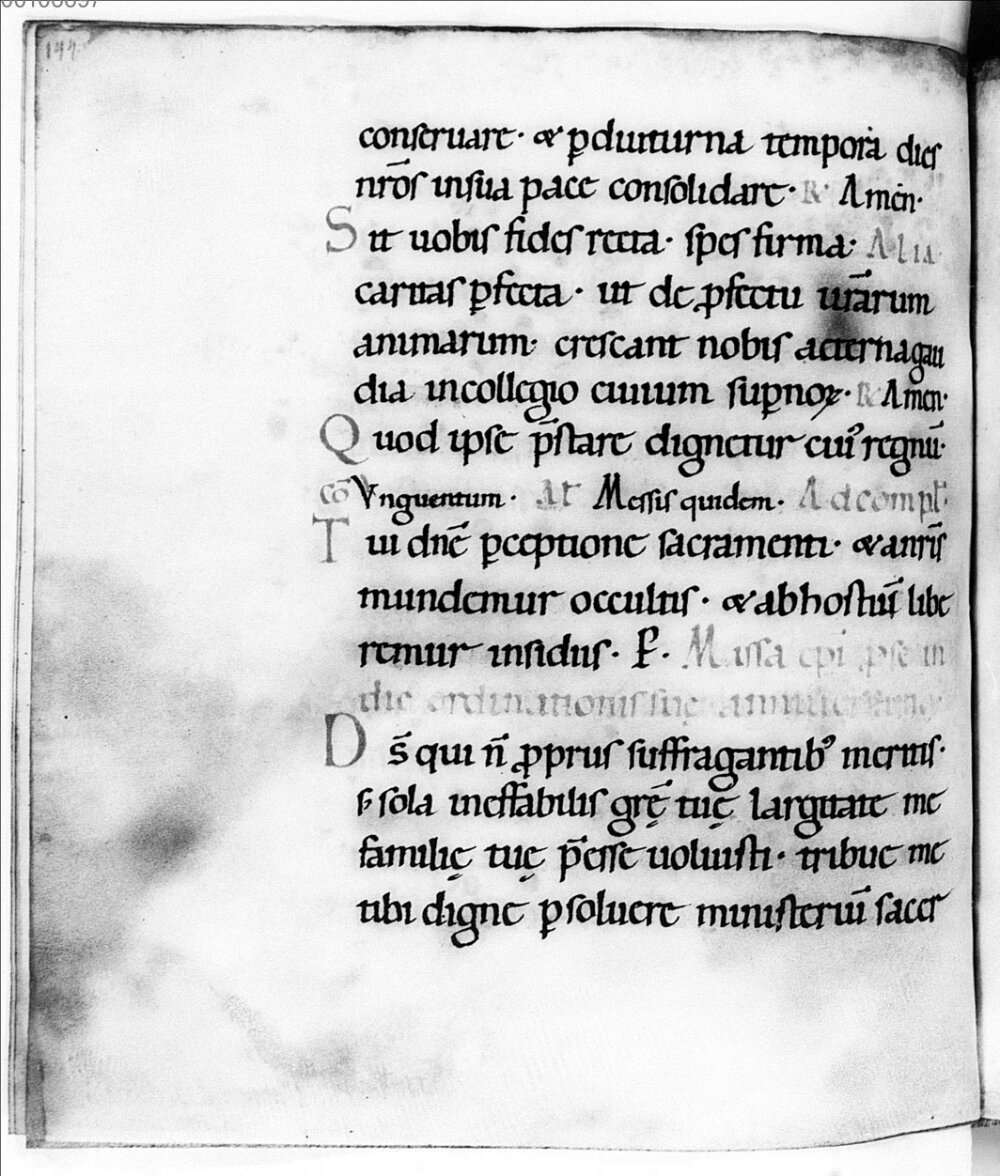 conseruare · & ꝑdiuturna tempora dies
nr̄os insua pace consolidare · R̷ · Amen ·
Sit uobis fides recta · spes firma · Alia
caritas ꝑfecta · ut de ꝓfectu ur̄arum
animarum · crescant nobis aeterna gau
dia incollegio ciuium suꝑnoꝝ · R̷ Amen ·
Quod ipse p̄stare dignetur cui᾽ regnū ·
cō Vnguentum · At Messis quidem · Ad compl̄ ·
Tui dn̄e ꝑceptione sacramenti · & anr̄is
mundemur occultis · & abhostiū libe
remur insidiis · P̷ · Missa ep̄i ꝓse in
die ordinationis suę
Ds̄ qui n̄ ꝓpriis suffragantib᾽ meritis ·
s; sola ineffabilis gr̄ę tuę largitate me
familię tuę p̄esse uoluisti · tribue me
tibi digne ꝑsoluere ministeriū sacer